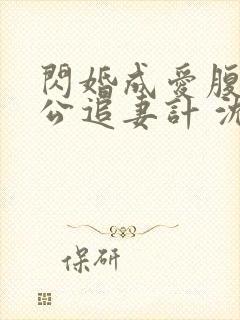 閃婚成愛腹
公追妻計 沈
保研